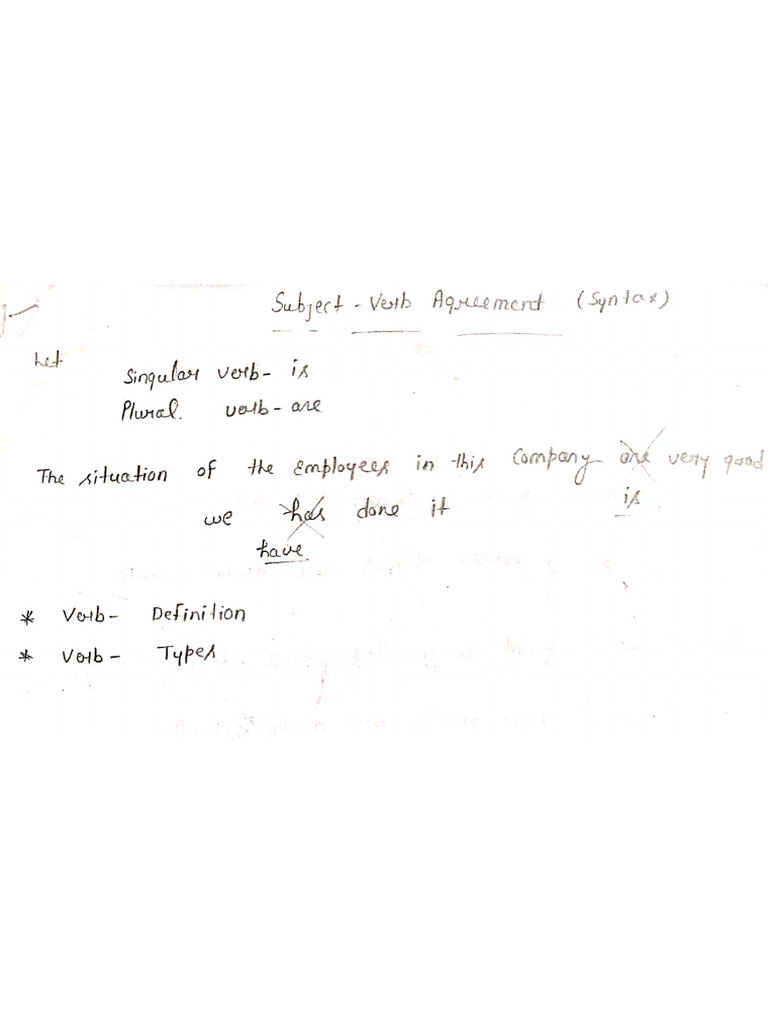 Subject - Verb Agreement (Syntax)
Let
Singular verb - is
Plural verb - are
The situation of the Employees in this Company are very good
is
we has done it
have
* Verb - Definition
* Verb - Types